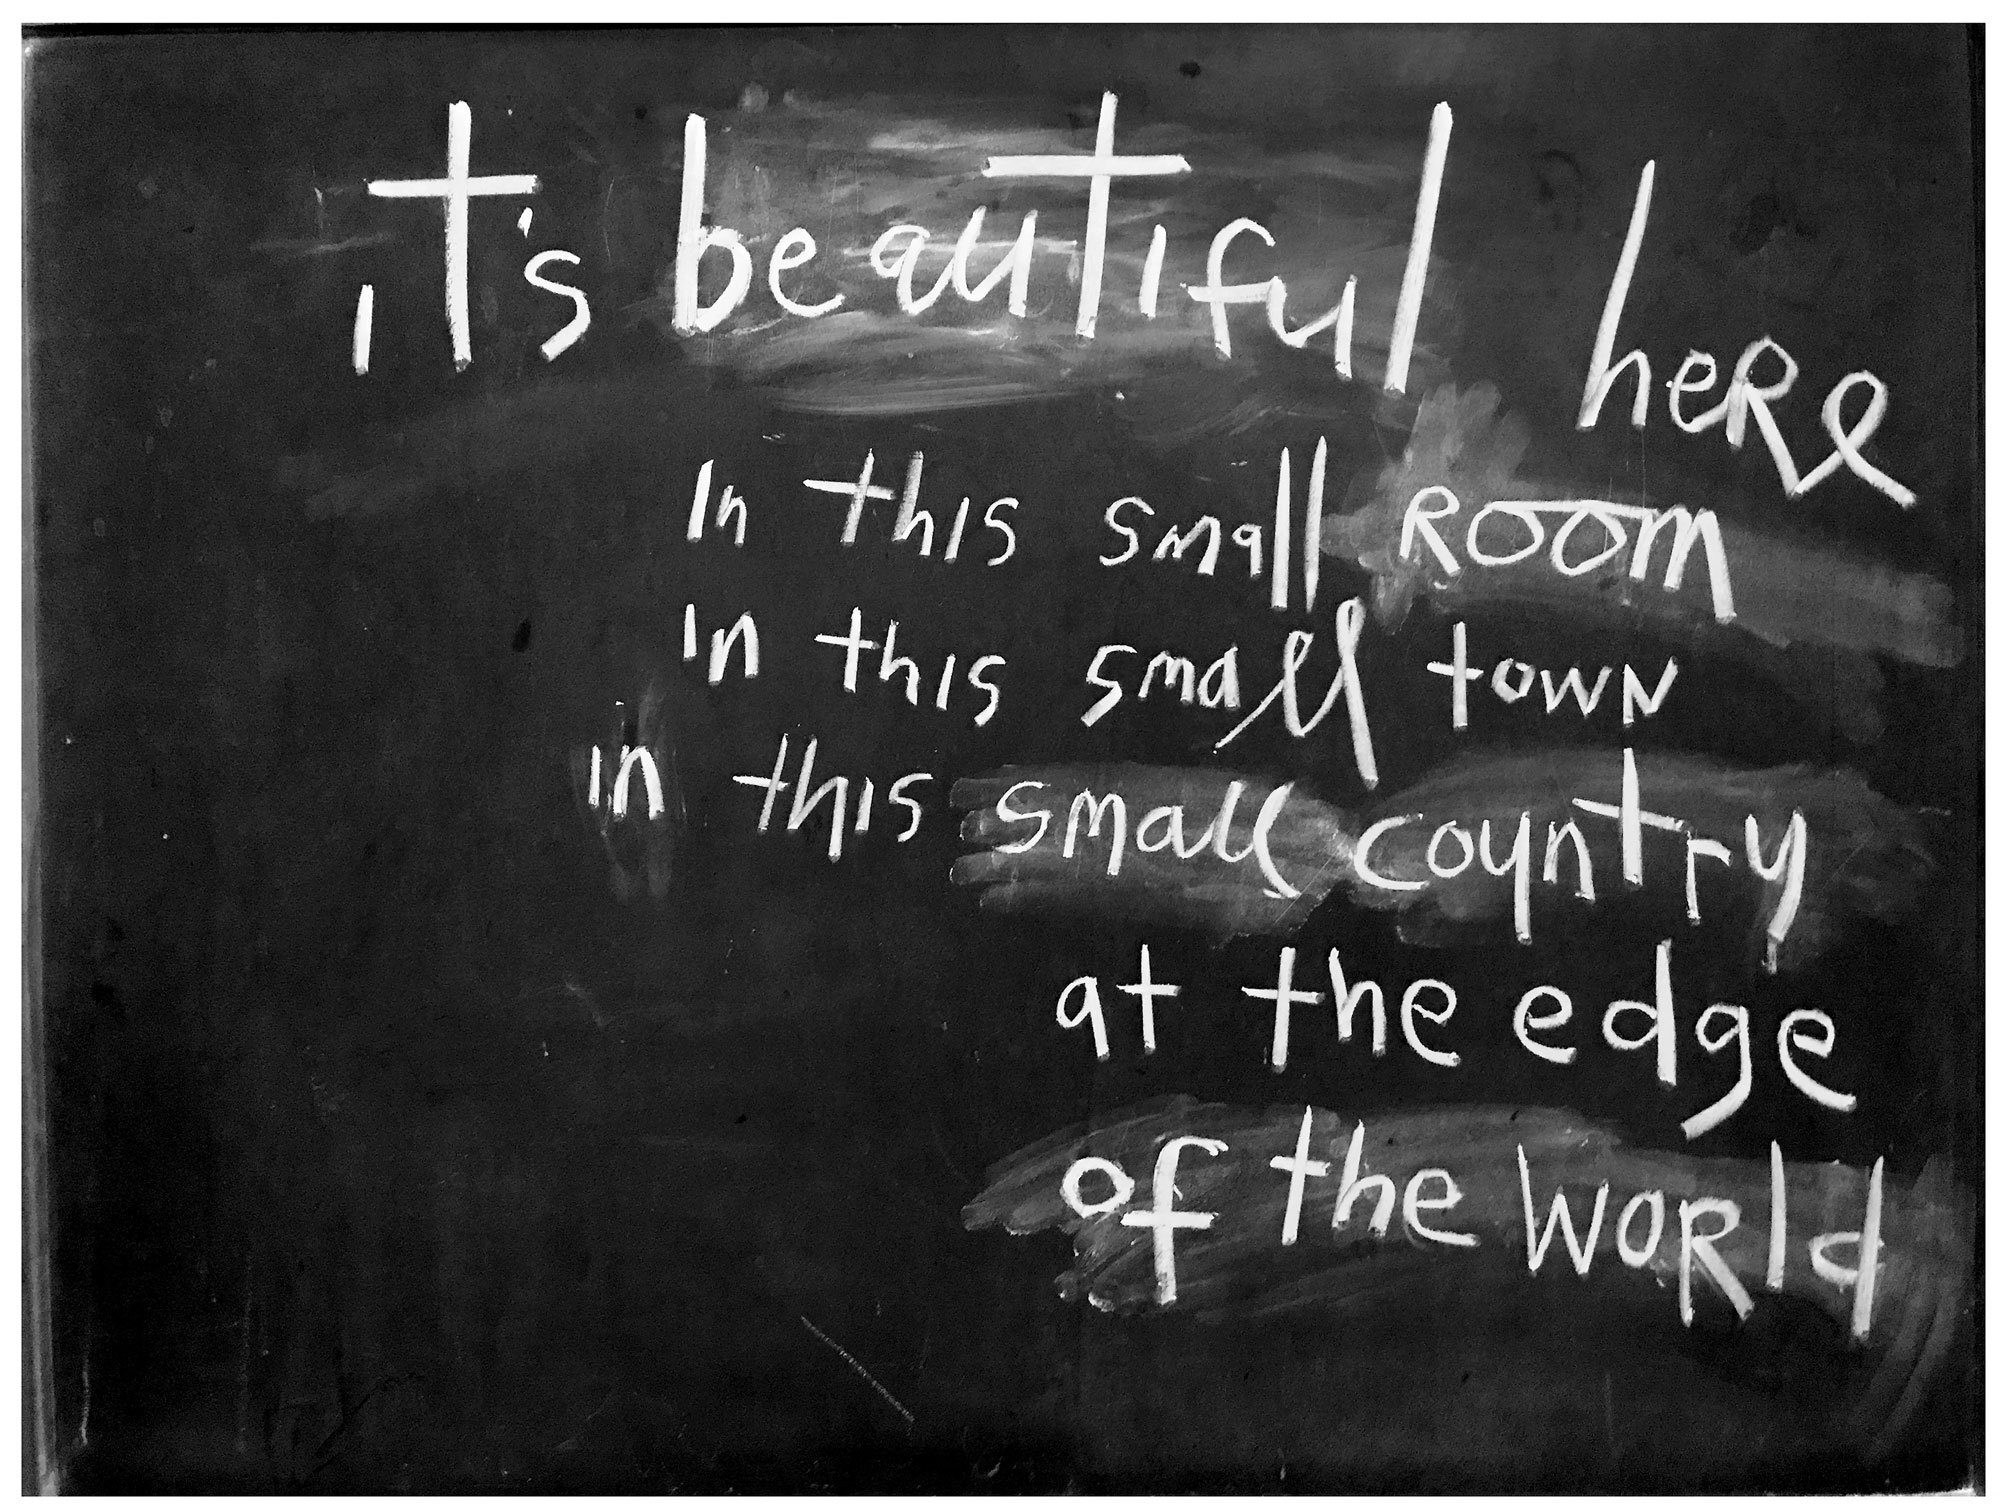 it's beautiful here
in this small ROOM
in this small town
in this small country
at the edge
of the world